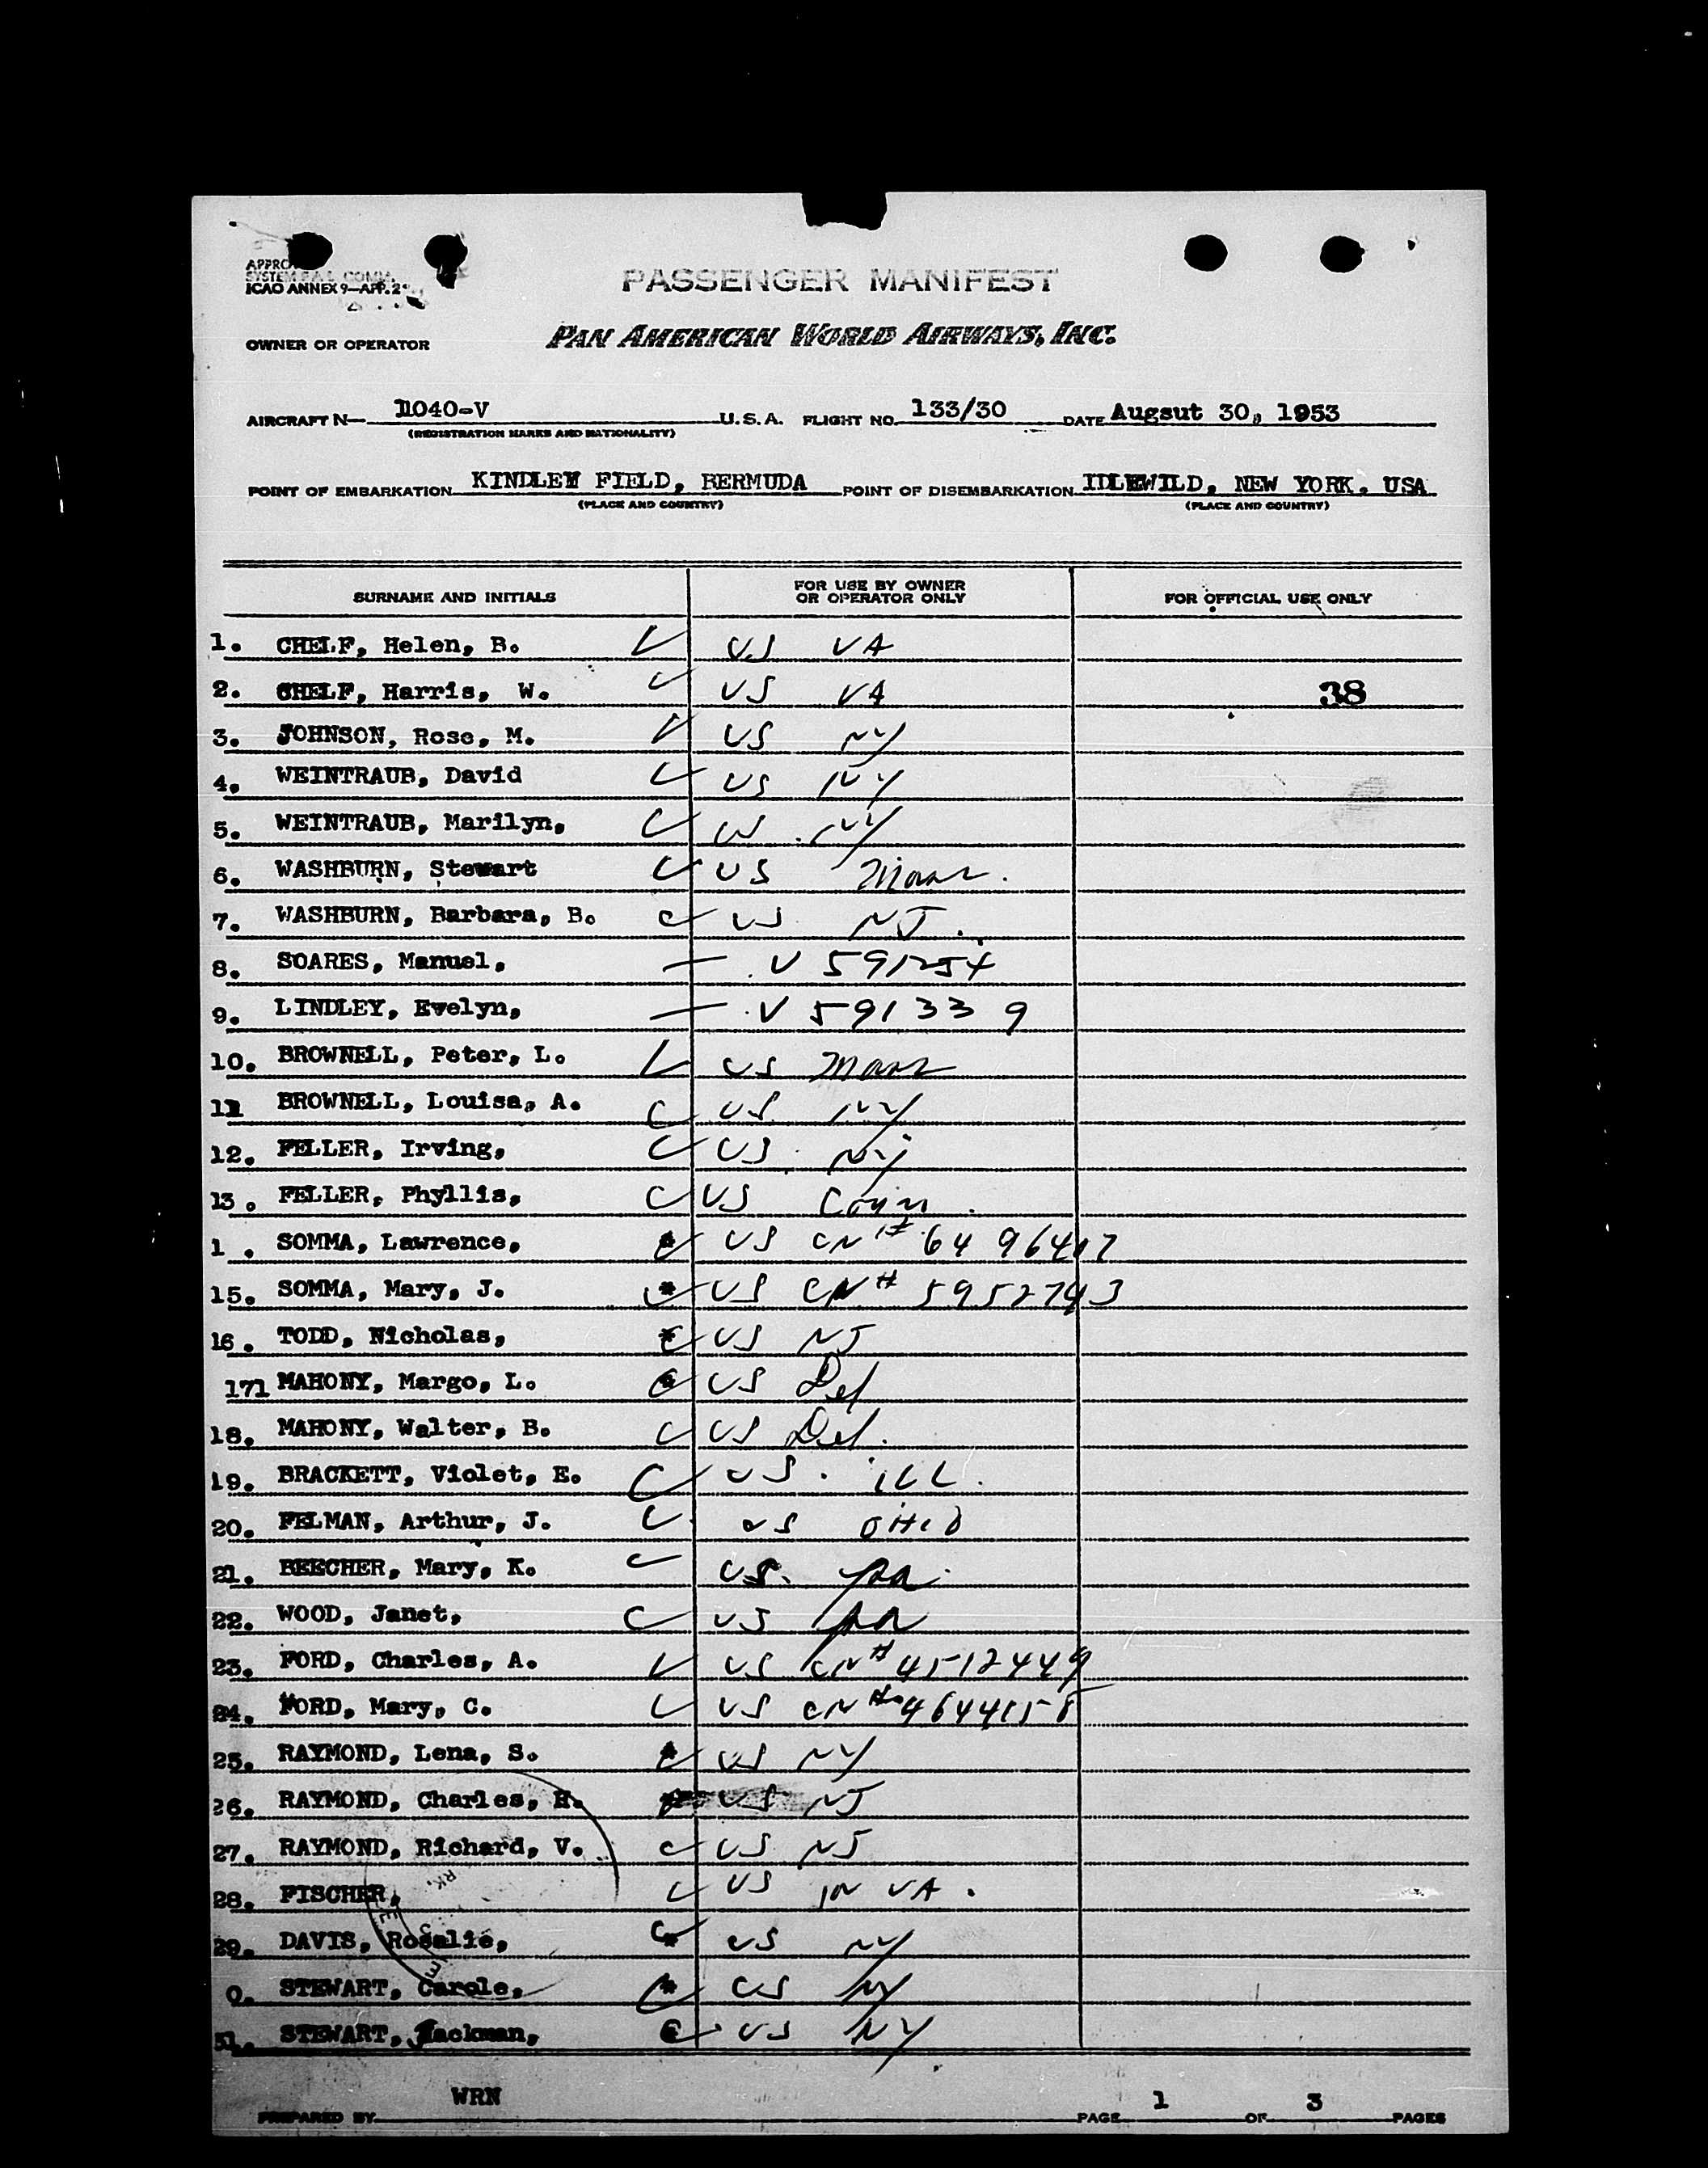 ICAO ANNEX 9—APP. 2
PASSENGER MANIFEST
PAN AMERICAN WORLD AIRWAYS, INC.
OWNER OR OPERATOR
AIRCRAFT N— 1040-V U.S.A. FLIGHT NO. 133/30 DATE Augsut 30, 1953
(REGISTRATION MARKS AND NATIONALITY)
POINT OF EMBARKATION KINDLEY FIELD, BERMUDA POINT OF DISEMBARKATION IDLEWILD, NEW YORK. USA
(PLACE AND COUNTRY) (PLACE AND COUNTRY)
SURNAME AND INITIALS FOR USE BY OWNER OR OPERATOR ONLY FOR OFFICIAL USE ONLY
1. CHELF, Helen, B. US VA
2. CHELF, Harris, W. US VA 38
3. JOHNSON, Rose, M. US NY
4. WEINTRAUB, David US NY
5. WEINTRAUB, Marilyn, US NY
6. WASHBURN, Stewart US Mass.
7. WASHBURN, Barbara, B. US NJ.
8. SOARES, Manuel, V 591254
9. LINDLEY, Evelyn, V 591339
10. BROWNELL, Peter, L. US Mass
11 BROWNELL, Louisa, A. US NY
12. FELLER, Irving, US NY
13. FELLER, Phyllis, US Conn.
1 . SOMMA, Lawrence, * US CN# 6496417
15. SOMMA, Mary, J. * US CN# 5952743
16. TODD, Nicholas, * US NJ
171 MAHONY, Margo, L. US Del
18. MAHONY, Walter, B. US Del.
19. BRACKETT, Violet, E. US. ILL.
20. FELMAN, Arthur, J. US OHIO
21. BEECHER, Mary, K. US. Pa.
22. WOOD, Janet, US Pa
23. FORD, Charles, A. US CN# 4512449
24. FORD, Mary, C. US CN# 4644158
25. RAYMOND, Lena, S. * US NY
26. RAYMOND, Charles, H. * US NJ
27. RAYMOND, Richard, V. US NJ
28. FISCHER, US VA.
29. DAVIS, Rosalie, * US NY
0. STEWART, Carole, * US NY
31. STEWART, Jackman, US NY
PREPARED BY WRN PAGE 1 OF 3 PAGES